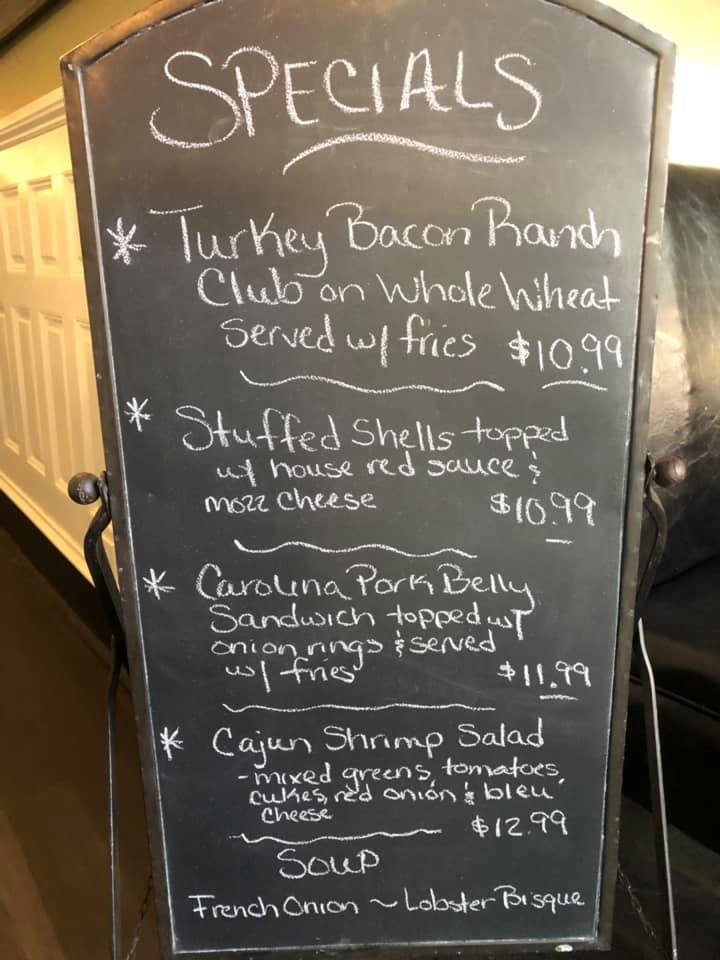 SPECIALS
* Turkey Bacon Ranch
Club on Whole Wheat
Served w/ fries $10.99
* Stuffed Shells topped
w/ house red sauce &
mozz cheese $10.99
* Carolina Pork Belly
Sandwich topped w/
onion rings & served
w/ fries $11.99
* Cajun Shrimp Salad
- mixed greens, tomatoes,
cukes, red onion & bleu
cheese
$12.99
SOUP
French Onion ~ Lobster Bisque